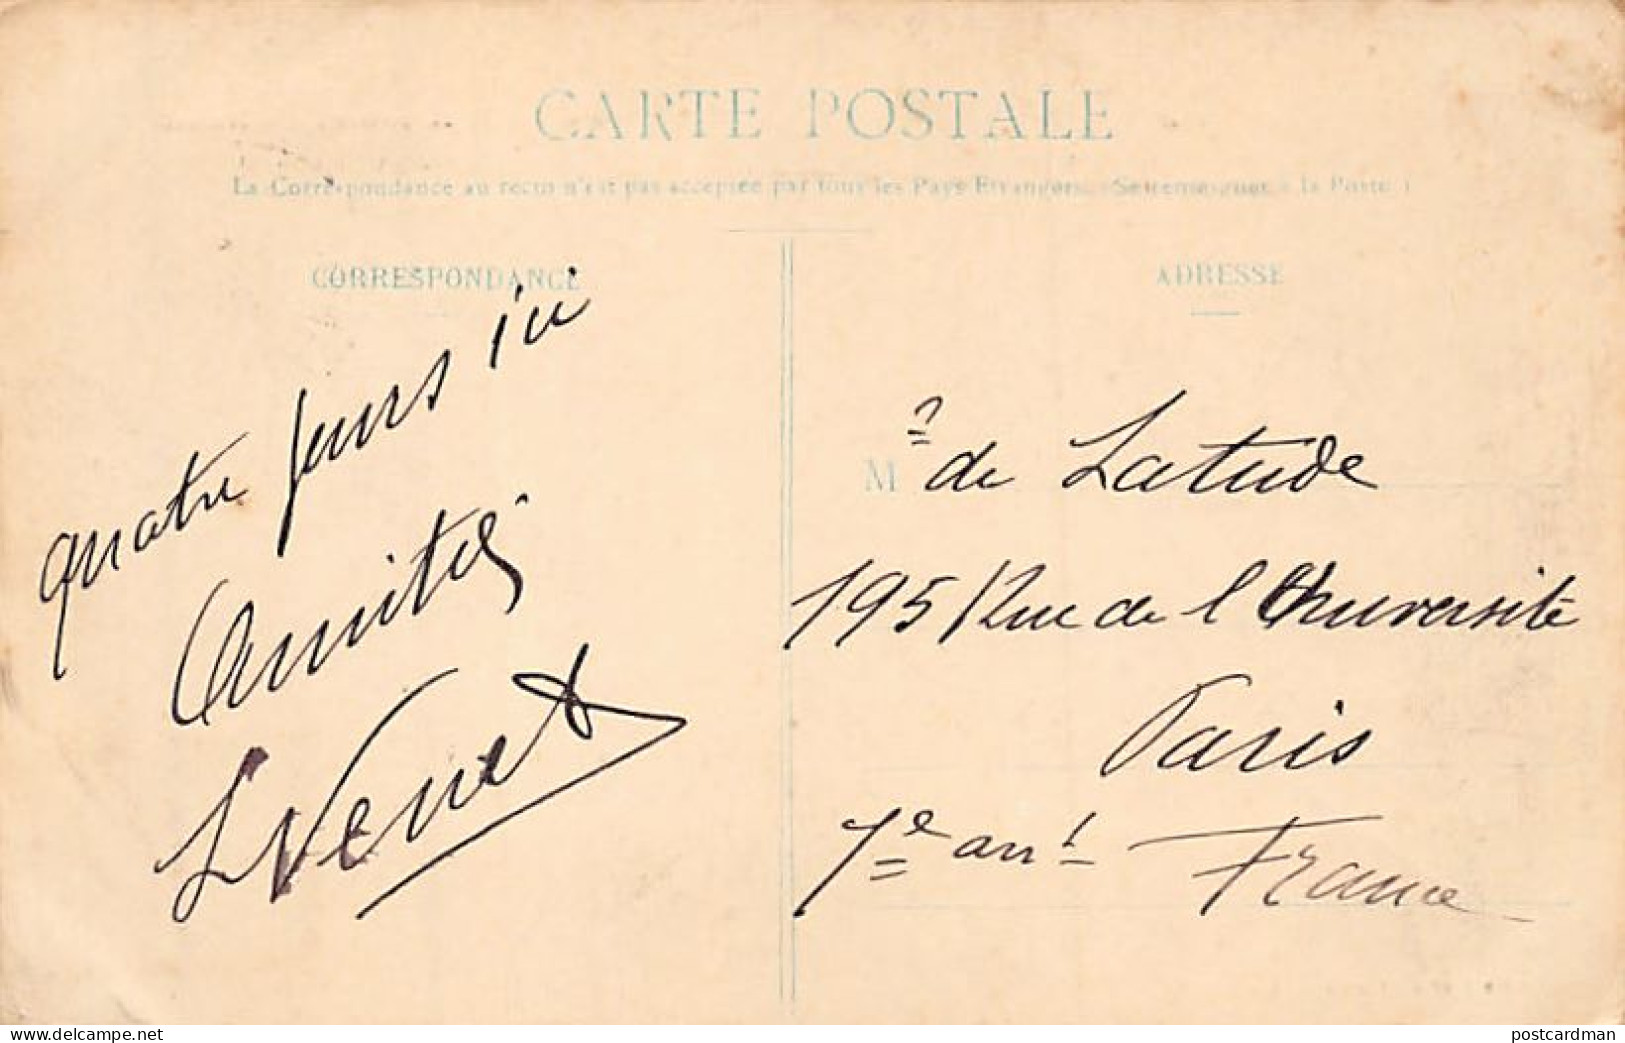 CARTE POSTALE
La Correspondance au recto n'est pas acceptée par tous les Pays Etrangers. (Se renseigner à la Poste)
CORRESPONDANCE
quatre jours ici
Amitiés
L Venet
ADRESSE
Mr de Latude
195 Rue de l'Université
Paris
7e arrt France
www.delcampe.net
postcardman